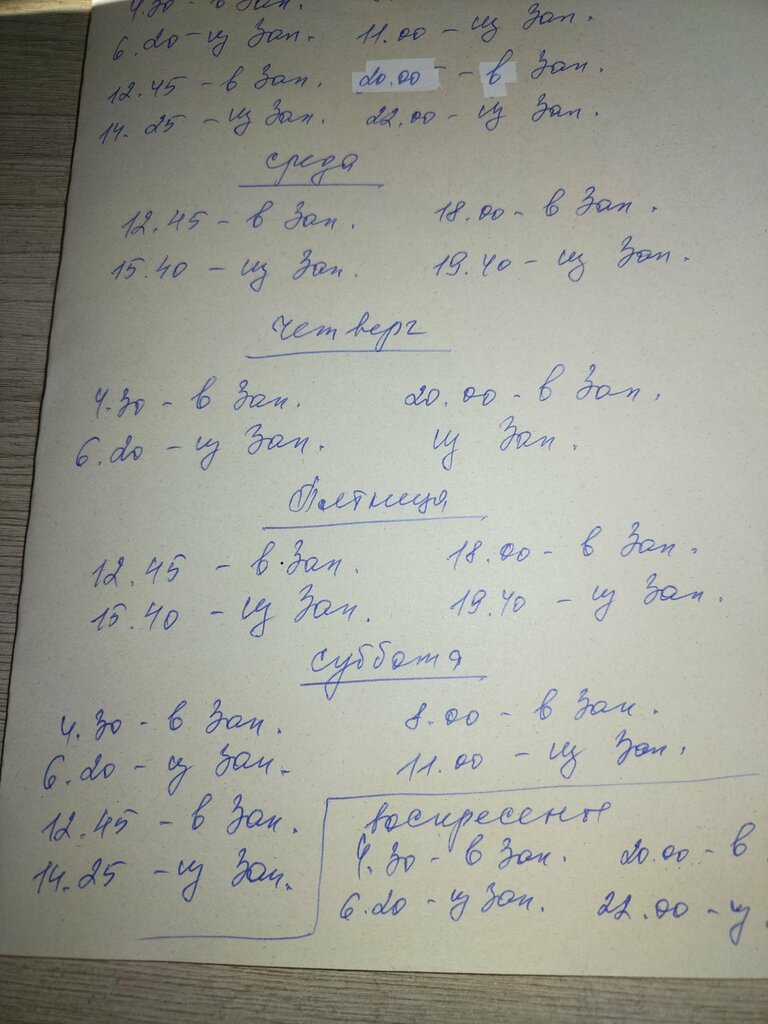 4.30 - в Зап.
6.20 - из Зап. 11.00 - из Зап.
12.45 - в Зап. 20.00 - в Зап.
14.25 - из Зап. 22.00 - из Зап.
среда
12.45 - в Зап. 18.00 - в Зап.
15.40 - из Зап. 19.40 - из Зап.
четверг
4.30 - в Зап. 20.00 - в Зап.
6.20 - из Зап. из Зап.
Пятница
12.45 - в Зап. 18.00 - в Зап.
15.40 - из Зап. 19.40 - из Зап.
суббота
4.30 - в Зап. 8.00 - в Зап.
6.20 - из Зап. 11.00 - из Зап.
12.45 - в Зап.
14.25 - из Зап.
воскресенье
4.30 - в Зап. 20.00 - в
6.20 - из Зап. 22.00 - из